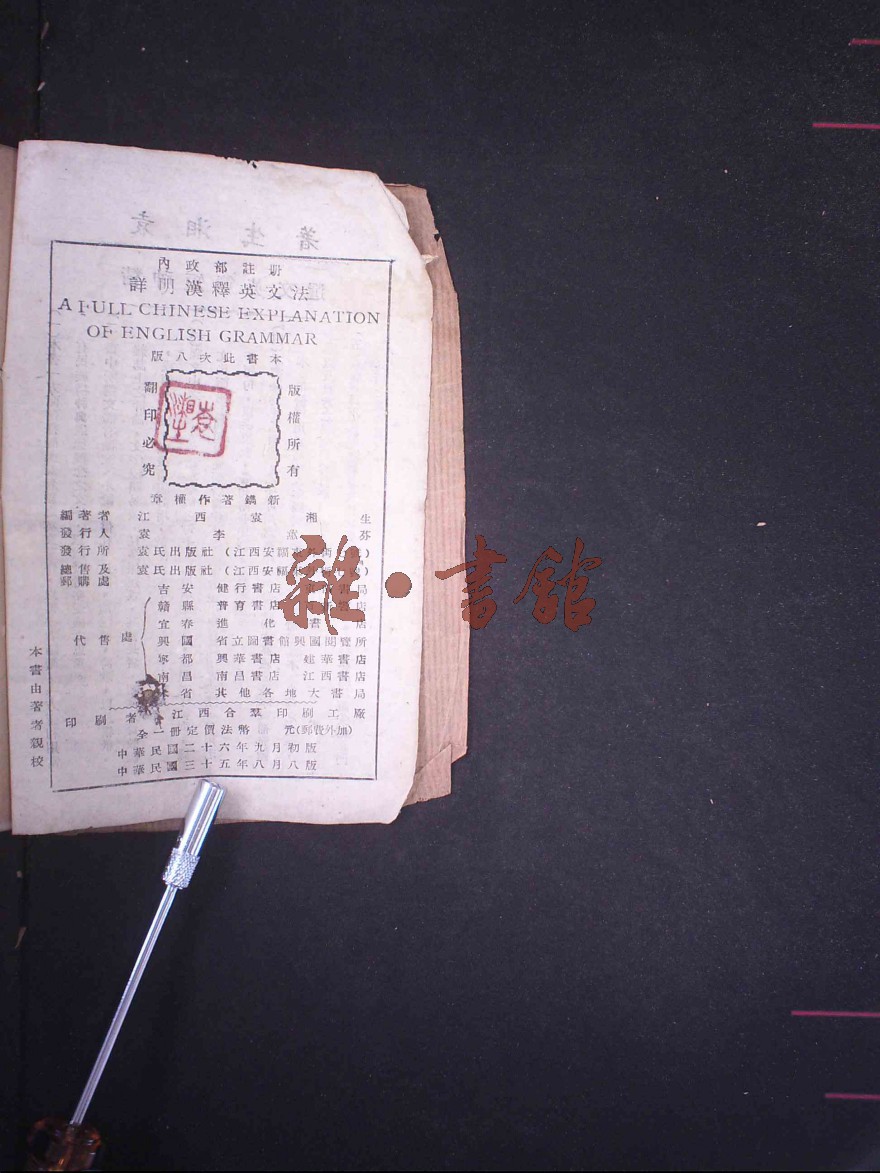 內政部註册
詳明漢釋英文法
A FULL CHINESE EXPLANATION
OF ENGLISH GRAMMAR
版八次此書本
版權所有
翻印必究
袁湘生
章權作著鐫新
編著者 江西袁湘生
發行人 袁李 芬
發行所 袁氏出版社(江西安福
總售及郵購處 袁氏出版社(江西安福
代售處
吉安 健行書店 書局
贛縣 普育書店 店
宜春 進化書店
興國 省立圖書館興國閱覽所
寧都 興華書店 建華書店
南昌 南昌書店 江西書店
本省 其他各地大書局
印刷者 江西合羣印刷工廠
全一冊定價法幣 元(郵費外加)
中華民國二十六年九月初版
中華民國三十五年八月八版
本書由著者親校
袁湘生著
雜·書館